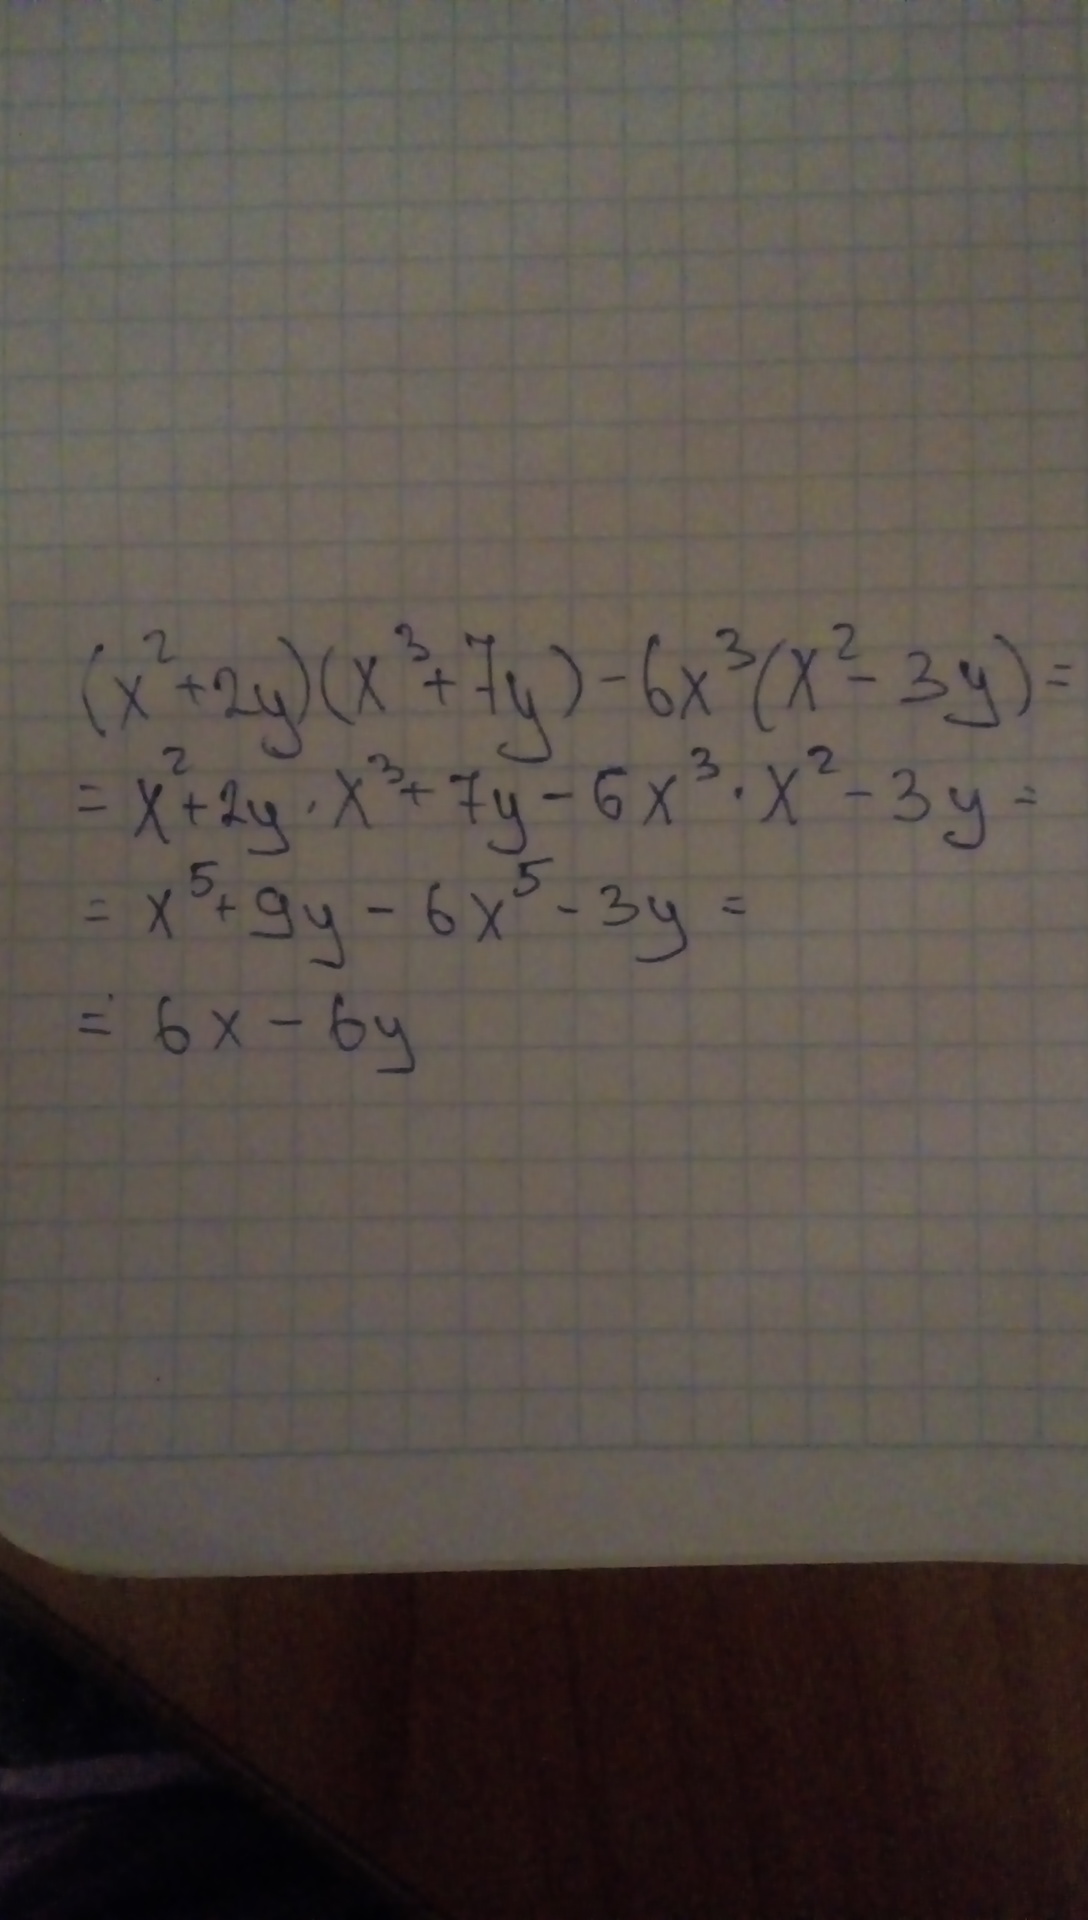 (x²+2y)(x³+7y)-6x³(x²-3y)=
=x²+2y·x³+7y-6x³·x²-3y=
=x⁵+9y-6x⁵-3y=
=6x-6y